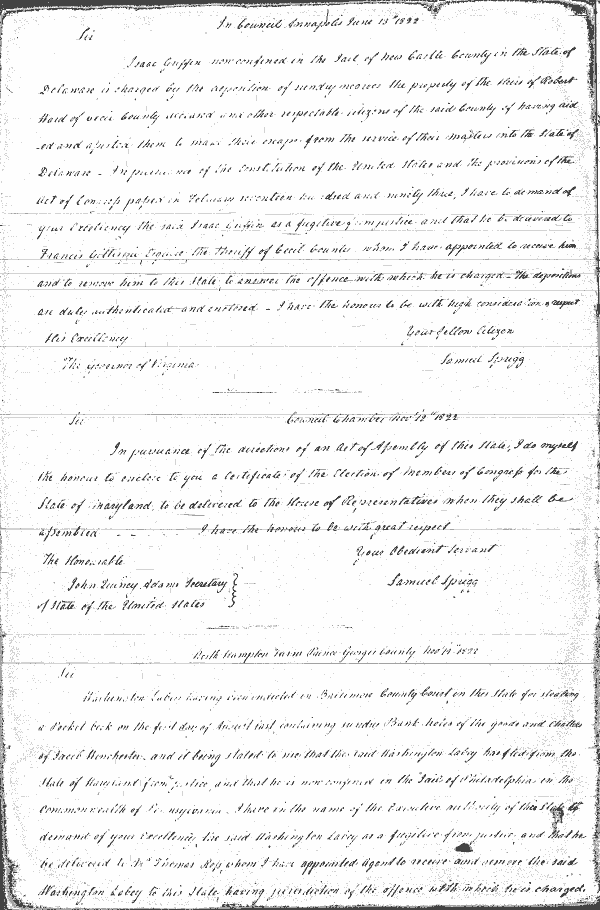 In Council Annapolis June 13th 1822
Sir
Isaac Griffin now confined in the Jail of New Castle County in the State of
Delaware is charged by the deposition of sundry negroes the property of the Heirs of Robert
Hard of Cecil County deceased and other respectable citizens of the said County of having aid
-ed and assisted them to make their escape from the service of their masters into the State of
Delaware - In pursuance of the Constitution of the United States and the provisions of the
Act of Congress passed in February seventeen hundred and ninety three, I have to demand of
your Excellency the said Isaac Griffin as a fugitive from justice and that he be delivered to
Francis Esquire, the Sheriff of Cecil County whom I have appointed to receive him
and to remove him to this State, to answer the offence with which he is charged - The depositions
are duly authenticated and enclosed - I have the honour to be with high consideration & respect
His Excellency Your fellow Citizen
The Governor of Virginia Samuel Sprigg
Sir Council Chamber Novr 12th 1822
In pursuance of the directions of an Act of Assembly of this State, I do myself
the honour to enclose to you a Certificate of the Election of members of Congress for the
State of Maryland, to be delivered to the House of Representatives when they shall be
assembled I have the honour to be with great respect
The Honourable Your Obedient Servant
John Quincy Adams Secretary Samuel Sprigg
of State of the United States
Hampton Farm Prince Georges County Novr 1822
Sir
Washington Labey having been indicted in Baltimore County Court in this State for stealing
a Pocket book on the first day of August last, containing sundry Bank notes of the goods and Chattles
of Jacob Winchester, and it being stated to me that the said Washington Labey has fled from the
State of Maryland from justice, and that he is now confined in the Jail of Philadelphia in the
Commonwealth of Pennsylvania. I have in the name of the Executive authority of this State to
demand of your Excellency the said Washington Labey as a fugitive from justice and that he
be delivered to Mr Thomas whom I have appointed Agent to receive and remove the said
Washington Labey to this State, having jurisdiction of the offence with which he is charged.